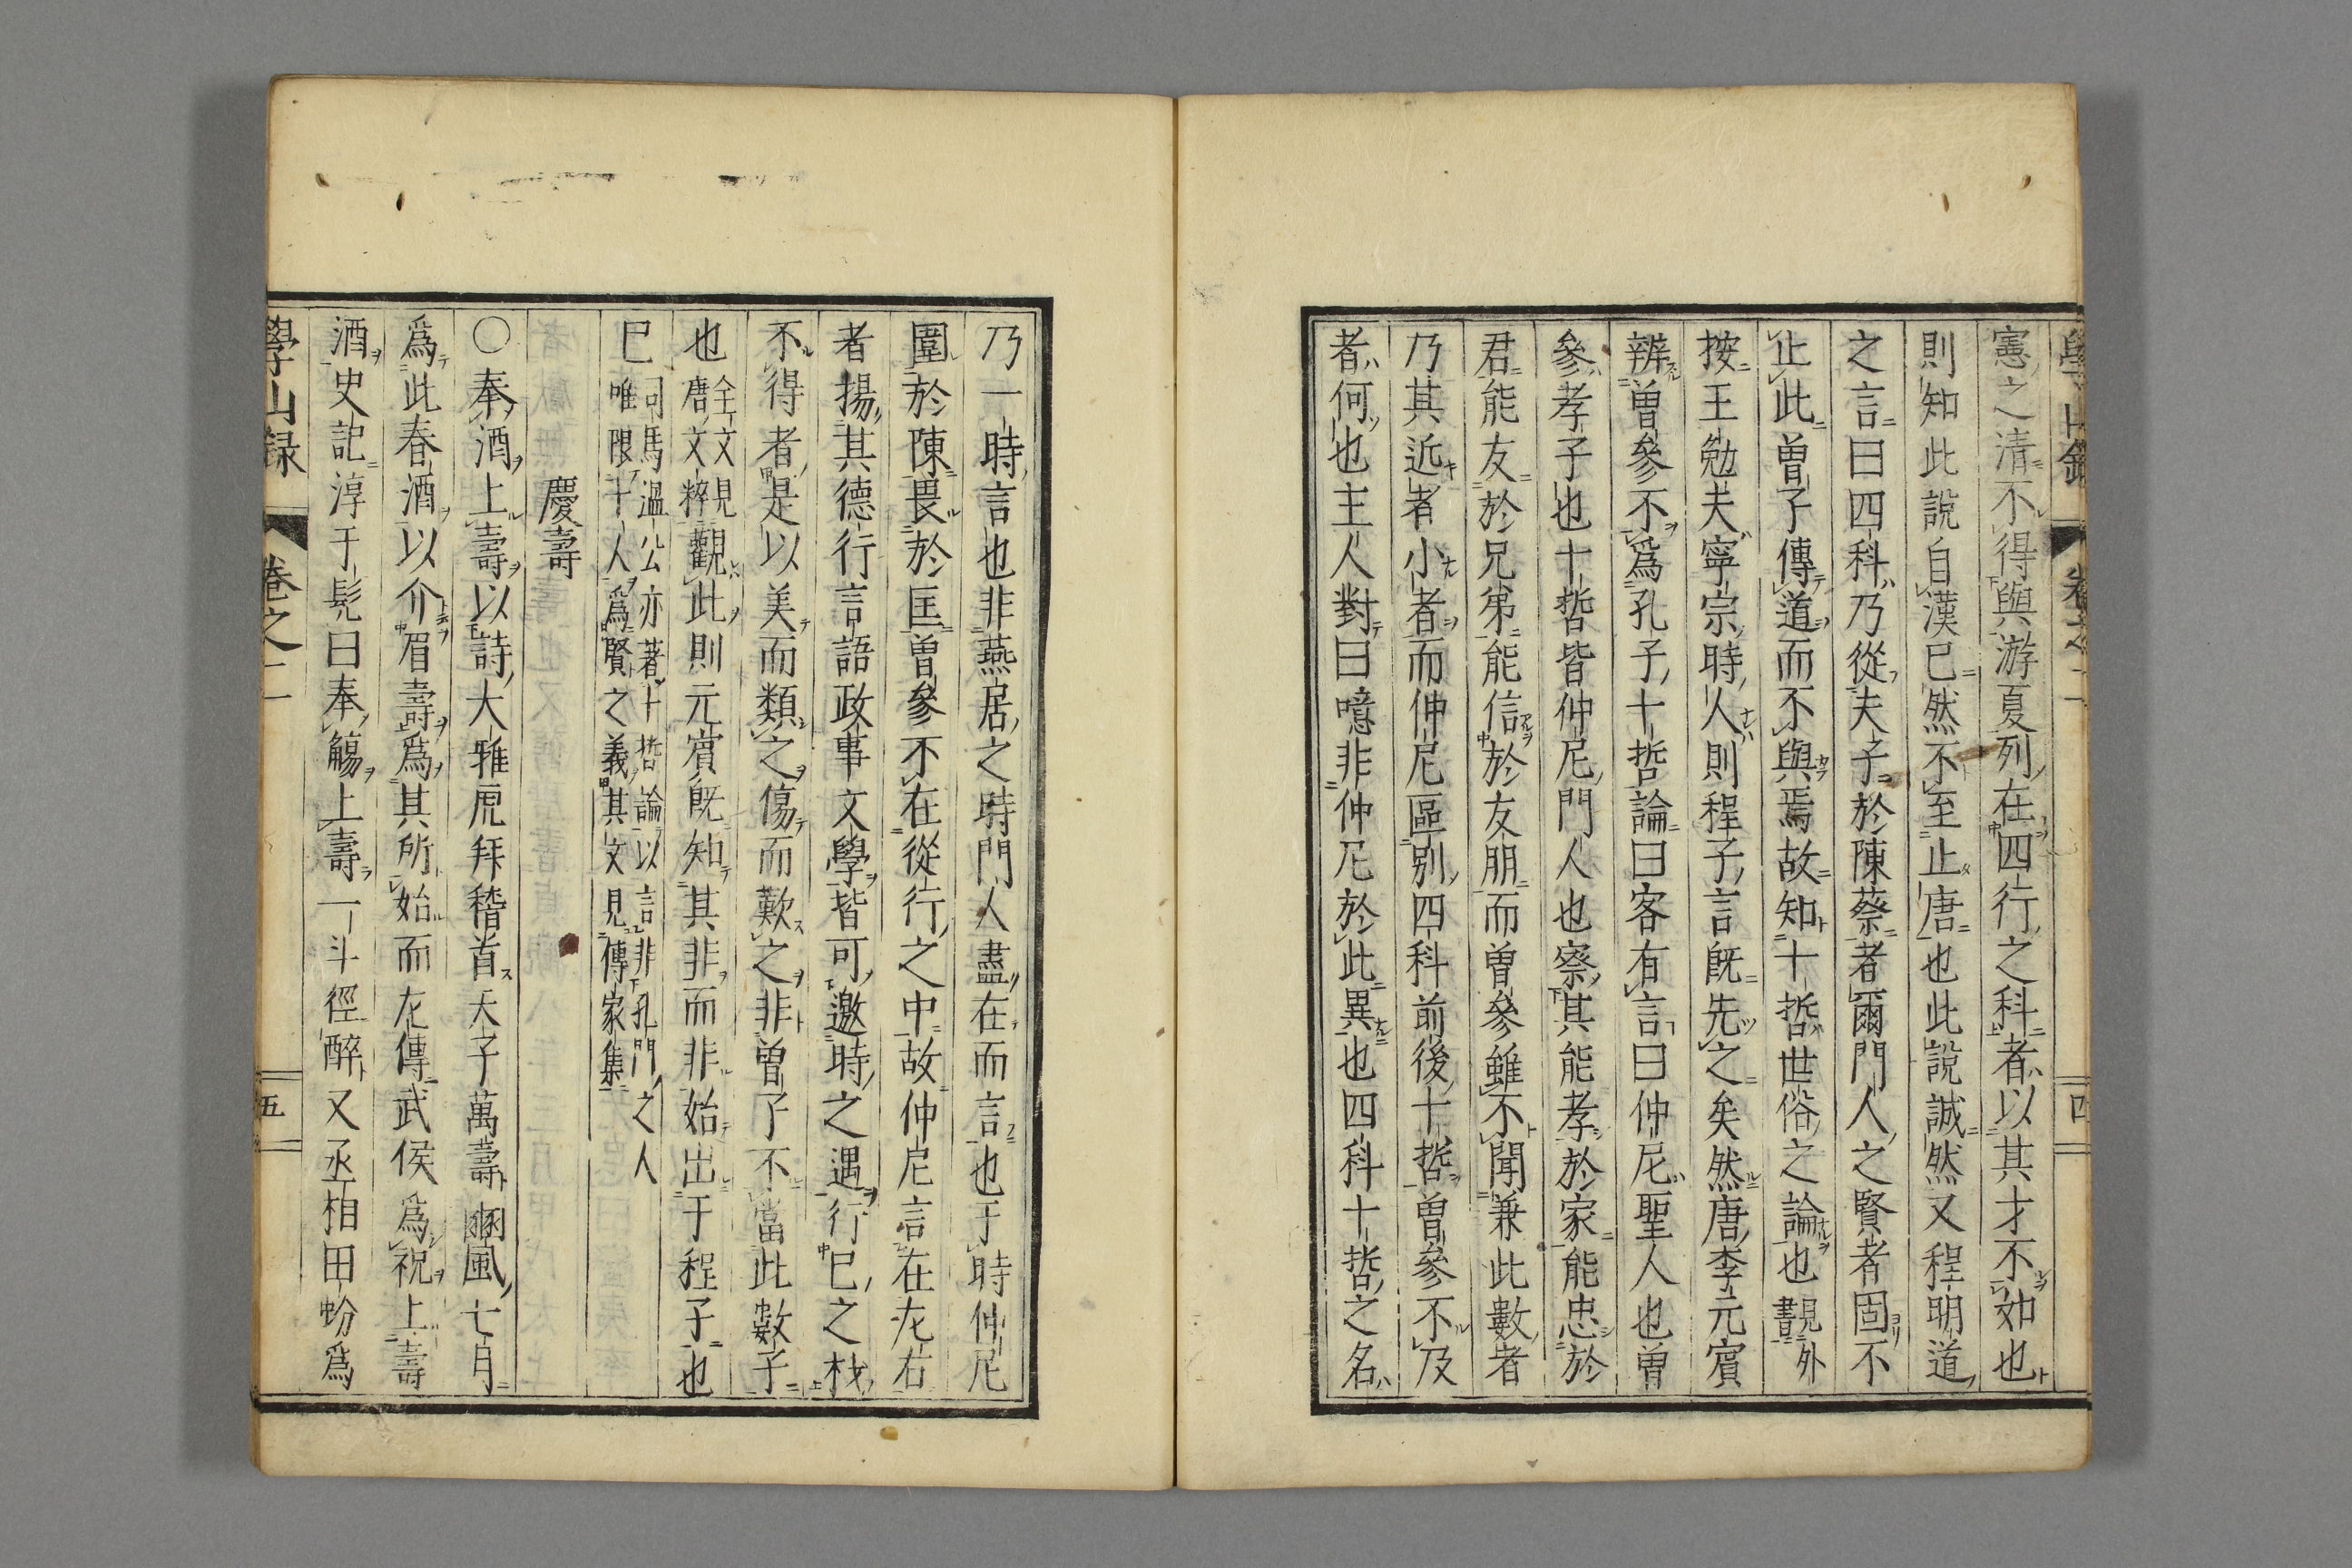 憲之清不得與游夏列在四行之科者以其才不如也
則知此說自漢已然不至止唐也此說誠然又程明道
之言曰四科乃從夫子於陳蔡者爾門人之賢者固不
止此曽子傳道而不與焉故知十哲世俗之論也見外書
按王勉夫寧宗時人則程子言既先之矣然唐李元賓
辨曽參不為孔子十哲論曰客有言曰仲尼聖人也曽
參孝子也十哲皆仲尼門人也察其能孝於家能忠於
君能友於兄弟能信於友朋而曽參雖不聞兼此數者
乃其近者小者而仲尼區別四科前後十哲曽參不及
者何也主人對曰噫非仲尼於此異也四科十哲之名
乃一時言也非燕居之時門人盡在而言也于時仲尼
圍於陳畏於匡曽參不在從行之中故仲尼言在左右
者揚其德行言語政事文學皆可邀時之遇行已之材
不得者是以美而類之傷而歎之非曽子不當此數子
也全文見唐文粹觀此則元賓既知其非而非始出于程子也
已司馬溫公亦著十哲論以言非孔門之人唯限十人爲賢之義其文見傳家集
慶壽
○奉酒上壽以詩大雅虎拜稽首天子萬壽豳風七月
爲此春酒以介眉壽爲其所始而左傳武侯爲祝上壽
酒史記淳于髡曰奉觴上壽一斗徑醉又丞相田蚡爲
學山録 卷之二 五